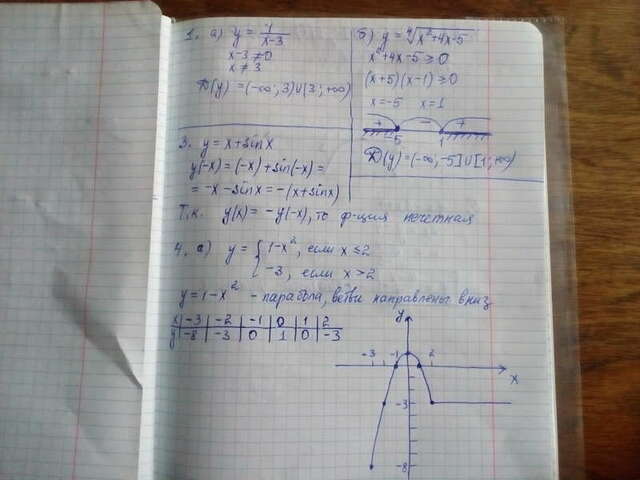 1. а) y = 1/(x-3)
x-3 ≠ 0
x ≠ 3
D(y) = (-∞; 3)∪(3; +∞)
б) y = ∜(x²+4x-5)
x²+4x-5 ≥ 0
(x+5)(x-1) ≥ 0
x=-5 x=1
+ - +
-5 1
D(y) = (-∞; -5]∪[1; +∞)
3. y = x+sinx
y(-x) = (-x)+sin(-x) =
= -x -sinx = -(x+sinx)
Т.к. y(x) = -y(-x), то ф-ция нечетная
4. а) y = { 1-x², если x ≤ 2
-3, если x > 2
y = 1-x² - парабола, ветви направлены вниз
x -3 -2 -1 0 1 2
y -8 -3 0 1 0 -3
y
-3 -1 2
x
-3
-8